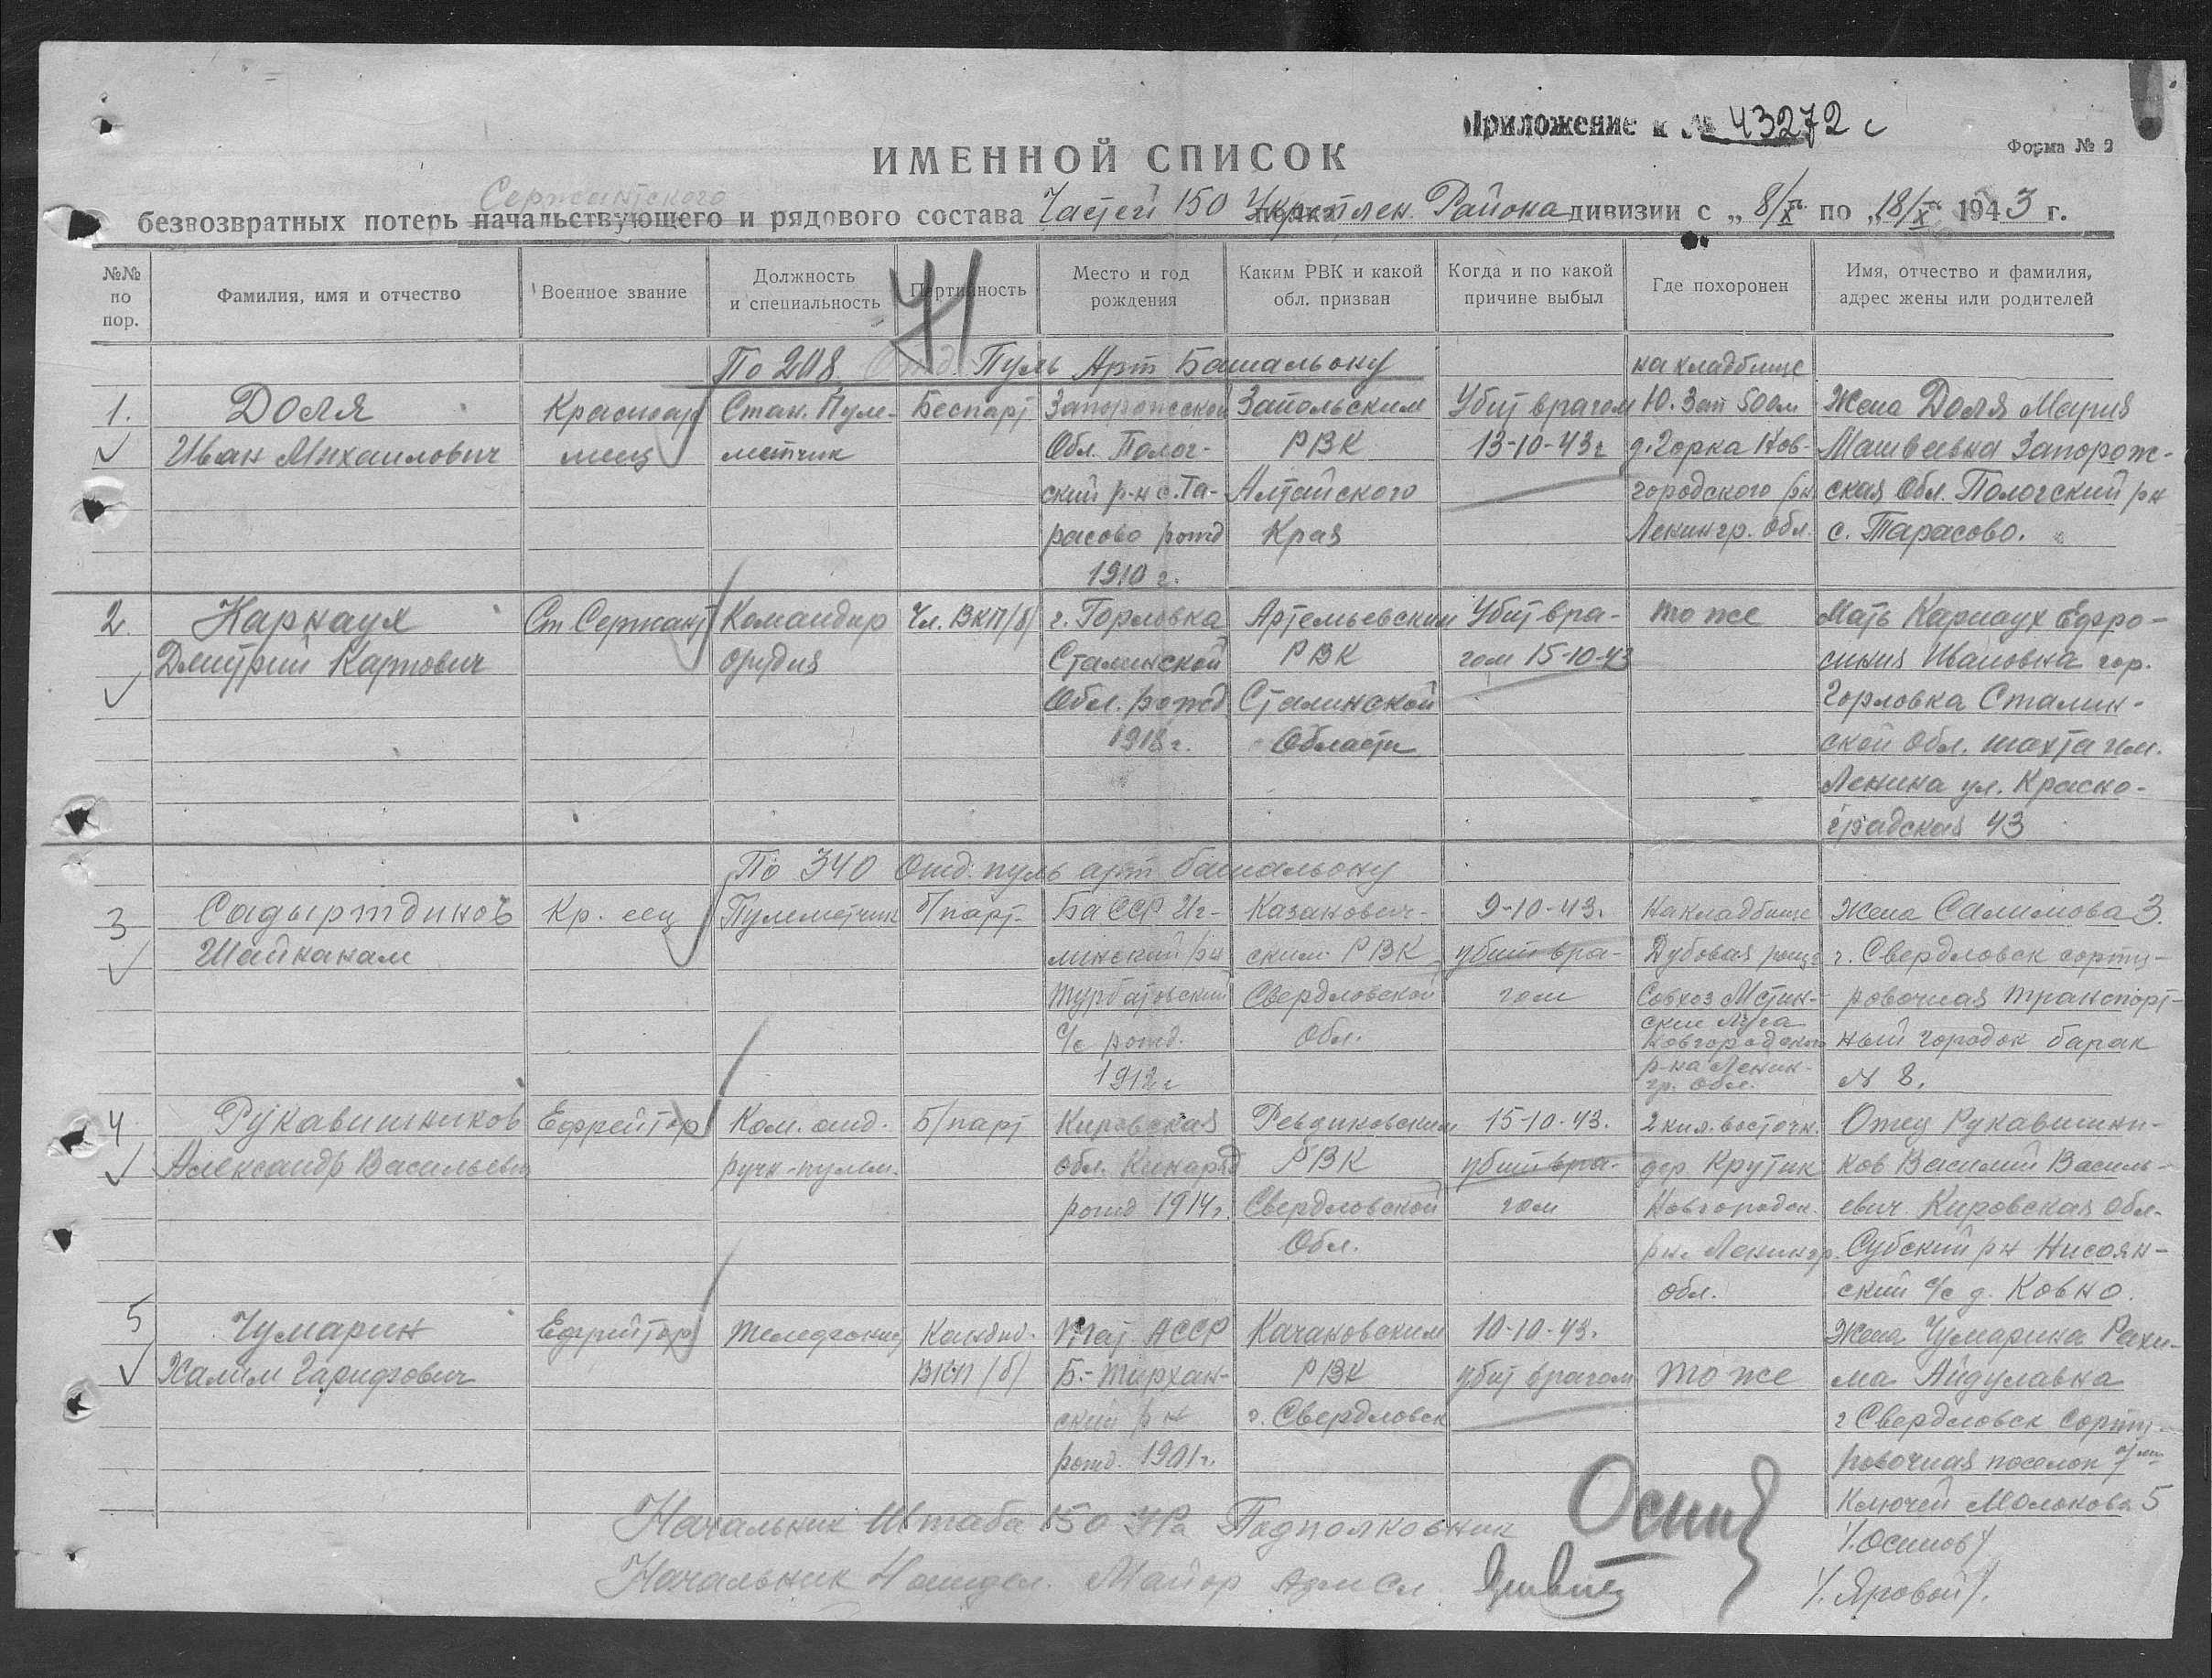 Приложение к № 43272 с
Форма № 2
ИМЕННОЙ СПИСОК
Сержантского
безвозвратных потерь начальствующего и рядового состава Частей 150 Укреплен. Района дивизии с „ 8/X по „ 18/X 1943 г.
№№ по пор.
Фамилия, имя и отчество
Военное звание
Должность и специальность
Партийность
Место и год рождения
Каким РВК и какой обл. призван
Когда и по какой причине выбыл
Где похоронен
Имя, отчество и фамилия, адрес жены или родителей
41
По 208 Отд. Пуль Арт Батальону на кладбище
1. Доля Красноар Стан. Пуле- Беспарт Запорожской Убит врагом Ю. Зап 500м Жена Доля Мария
Иван Михаилович меец метчик Обл. Полог- РВК 13-10-43г д. Горка Нов- Матвеевна Запорож-
ский р-н с. Та- Алтайского городского рн ская Обл. Пологский рн
расово рожд Края Ленингр. Обл. с. Тарасово.
1910 г.
2. Карнаух Ст Сержант Командир Чл. ВКП/б/ г. Горловка Артемьевским Убит вра- то же Мать Карнаух Ефро-
Дмитрий Карпович орудия Сталинской РВК гом 15-10-43 синия Ивановна гор.
Обл. рожд Сталинской Горловка Сталин-
1918 г. Области ской обл. шахта им.
Ленина ул. Красно-
градская 43
По 340 Отд. пуль арт батальону
3 Садыртдинов Кр. еец Пулеметчик б/парт. БаССР Иг- 9-10-43. На кладбище Жена Салимова З.
линский рн ским РВК убит вра- Дубовая роща г. Свердловск сорти-
Свердловской гом Совхоз Мстин- ровочная транспорт-
с/с рожд. Обл. ский Луга ный городок барак
1912 г Новгородского № 8.
р-на Ленин-
гр. Обл.
4 Рукавишников Ефрейтор Ком. отд. Б/парт Кировская 15-10-43. 2 км. восточн. Отец Рукавишни-
Александр Васильевич ручн-пульм. обл. РВК убит вра- дер Крутик ков Василий Василь-
рожд 1914 г. Свердловской гом Новгородск. евич. Кировская Обл.
Обл. рн. Ленингр. рн
обл. ский с/с д. Ковно.
5 Чумарин Ефрейтор Телефонист Кандид. Тат АССР 10-10-43. Жена Чумарина Рахи-
Халим Гарифович ВКП/б/ РВК убит врагом то же ма
ский рн г. Свердловск г Свердловск Сорти-
рожд. 1901 г. ровочная поселок 7
Ключей Молокова 5
Начальник Штаба 150 УРа Подполковник Осипов /Осипов/
Начальник Майор Адм Сл /Яровой/.